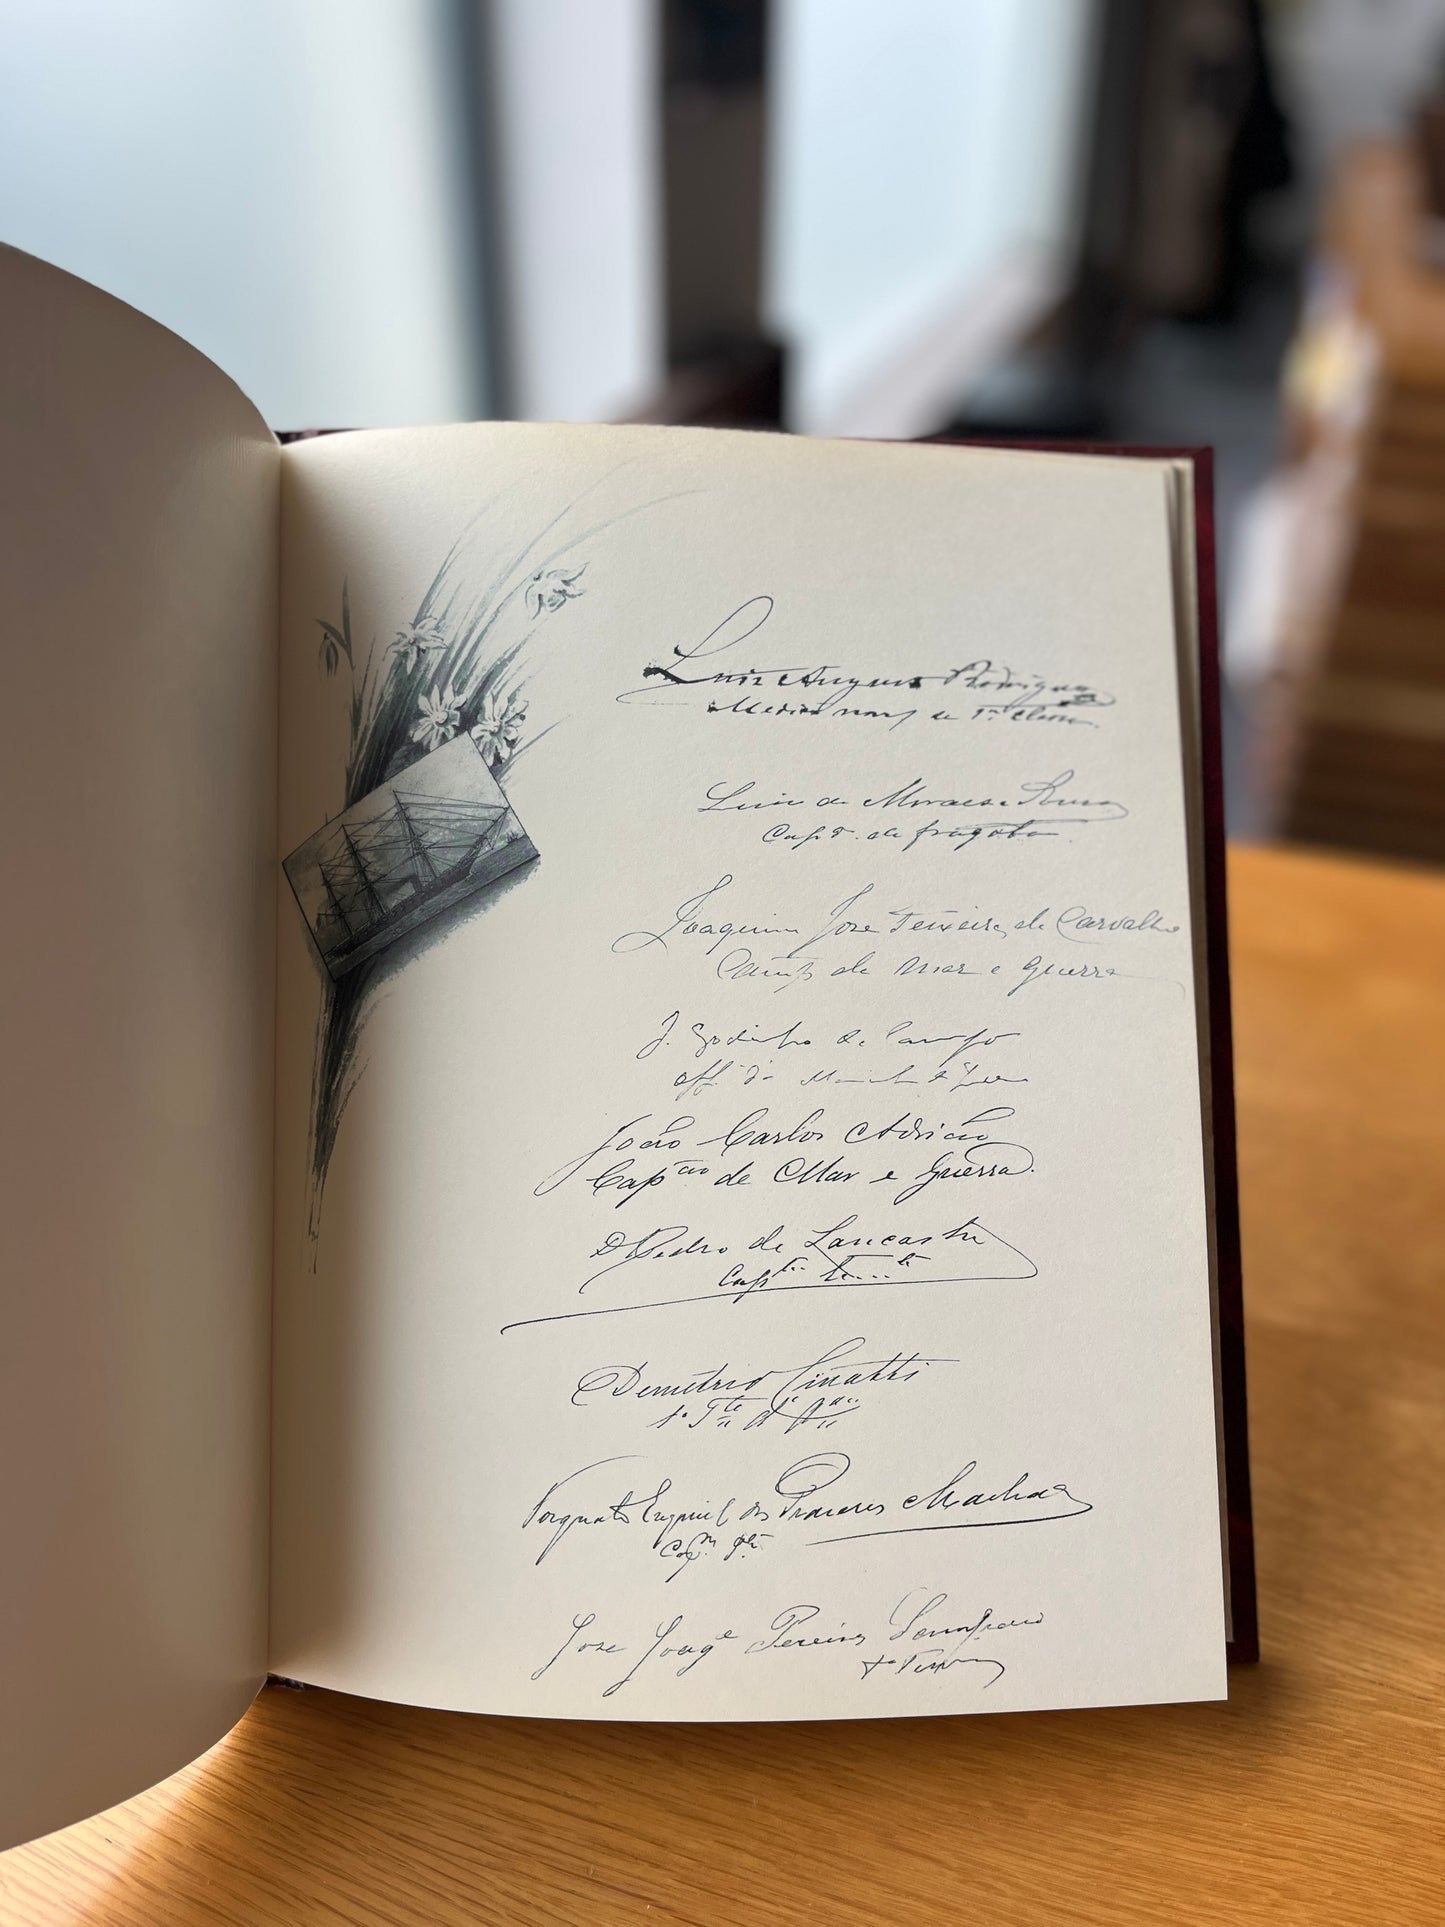 Luiz Augusto Rodrigues
Medico nav. de 1ª classe
Luiz de Moraes e Sousa
Cap.ᵐ de fragata
Joaquim José Teixeira de Carvalho
de mar e guerra
J. Godinho de Campos
off.
João Carlos Adrião
Capᵗᵃᵒ de Mar e Guerra.
D. Pedro de Lancastre
Capᵗᵐ Tenᵗᵉ
Demétrio Cinatti
1º Tᵗᵉ
Torquato dos Prazeres Machado
José Joaqᵉ Pereira
1º Ten